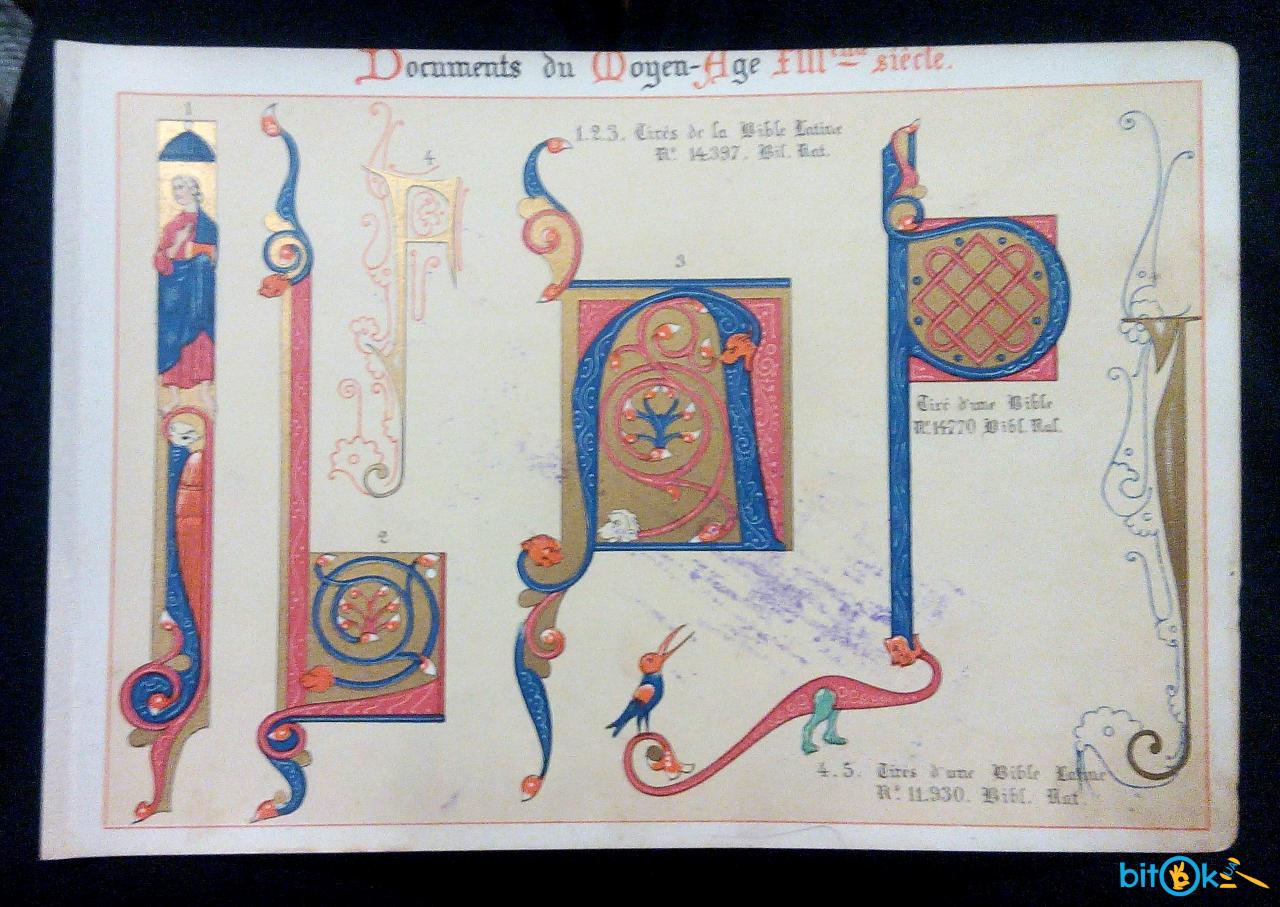 Documents du Moyen-Age XIII eme siècle.
1
1.2.3. Tirés de la Bible Latine
Nº 14.397. Bil. Nat.
4
3
Tiré d'une Bible
Nº 14770 Bibl. Nat.
2
4.5. Tirés d'une Bible Latine
Nº 11.930. Bibl. Nat.
bitOk UA